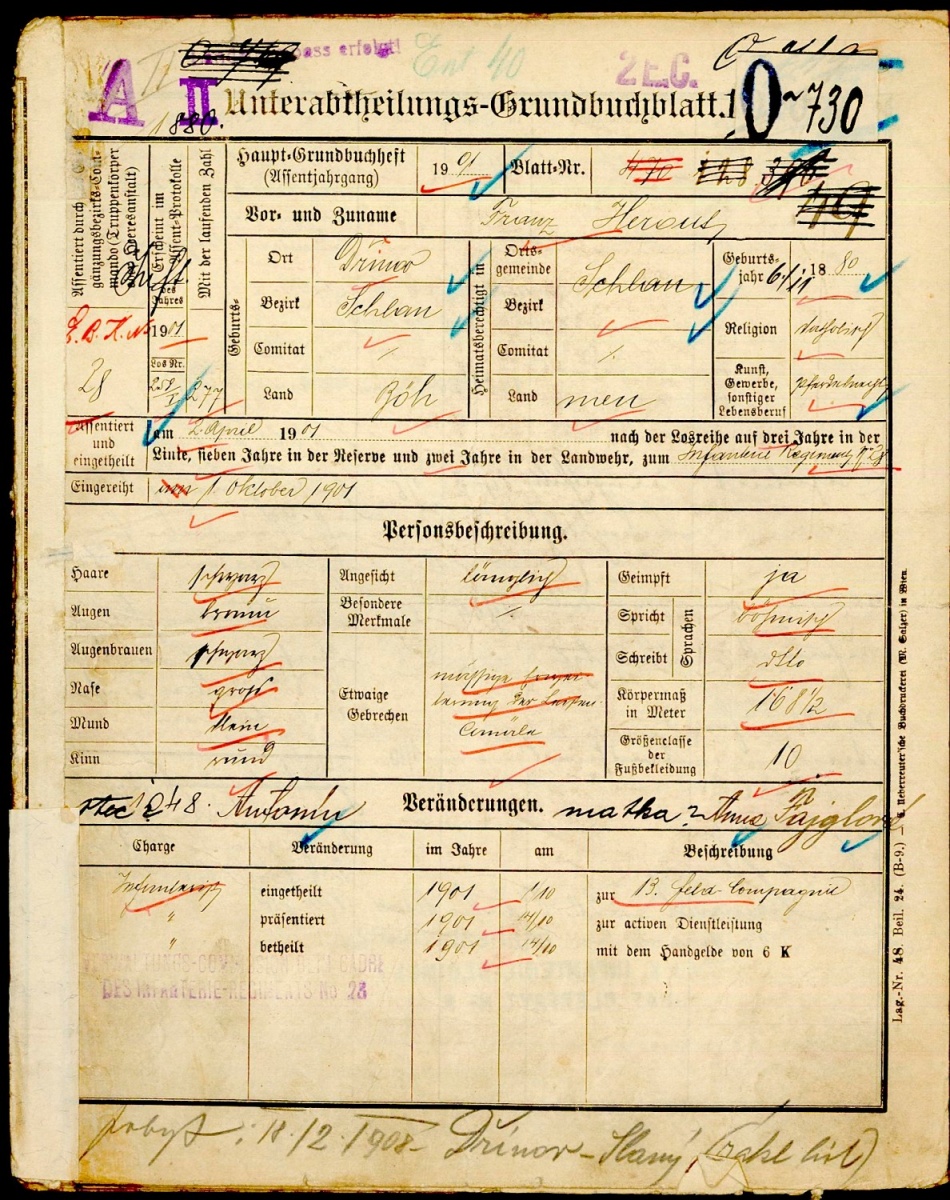 A II
ass erfolgt!
Ent 40
2E.C.
Unterabtheilungs-Grundbuchblatt.
0~730
1880.
Assentiert durch
gänzungsbezirks-Com-
mando (Truppenkörper
Heeresanstalt)
Erscheint im Assent-Protokolle
des Jahres
1901
Los Nr.
Mit der laufenden Zahl
28
277
Haupt-Grundbuchheft
(Assentjahrgang)
1901
Blatt-Nr.
Vor- und Zuname
Franz Herout
Geburts-
Ort
Dřinov
Bezirk
Schlan
Comitat
Land
Böh
Heimatsberechtigt in
Orts-
gemeinde
Schlan
Bezirk
Comitat
Land
men
Geburts-
jahr 6/11 1880
Religion
katholisch
Kunst,
Gewerbe,
sonstiger
Lebensberuf
Pferdeknecht
Assentiert
und
eingetheilt
am 2. April 1901 nach der Losreihe auf drei Jahre in der
Linie, sieben Jahre in der Reserve und zwei Jahre in der Landwehr, zum Infanterie Regiment Nr 28
Eingereiht
1. Oktober 1901
Personsbeschreibung.
Haare schwarz
Augen braun
Augenbrauen schwarz
Nase groß
Mund klein
Kinn rund
Angesicht länglich
Besondere
Merkmale
Etwaige
Gebrechen
mässige
Geimpft ja
Spricht
Schreibt
Sprachen
böhmisch
dtto
Körpermaß
in Meter
168 1/2
Größenclasse
der
Fußbekleidung
10
otec Antonín
Veränderungen.
matka? Anna Fajglová
Charge Veränderung im Jahre am Beschreibung
Infanterist eingetheilt 1901 1/10 zur 13. Feld-Compagnie
" präsentiert 1901 14/10 zur activen Dienstleistung
" betheilt 1901 14/10 mit dem Handgelde von 6 K
DES INFANTERIE-REGIMENTS No 28
pobyt: 18./2. 1908 - Dřínov - Slaný
Lag.-Nr. 48. Beil. 24. (B-9.) Ueberreuter'sche Buchdruckerei (M. Salzer) in Wien.